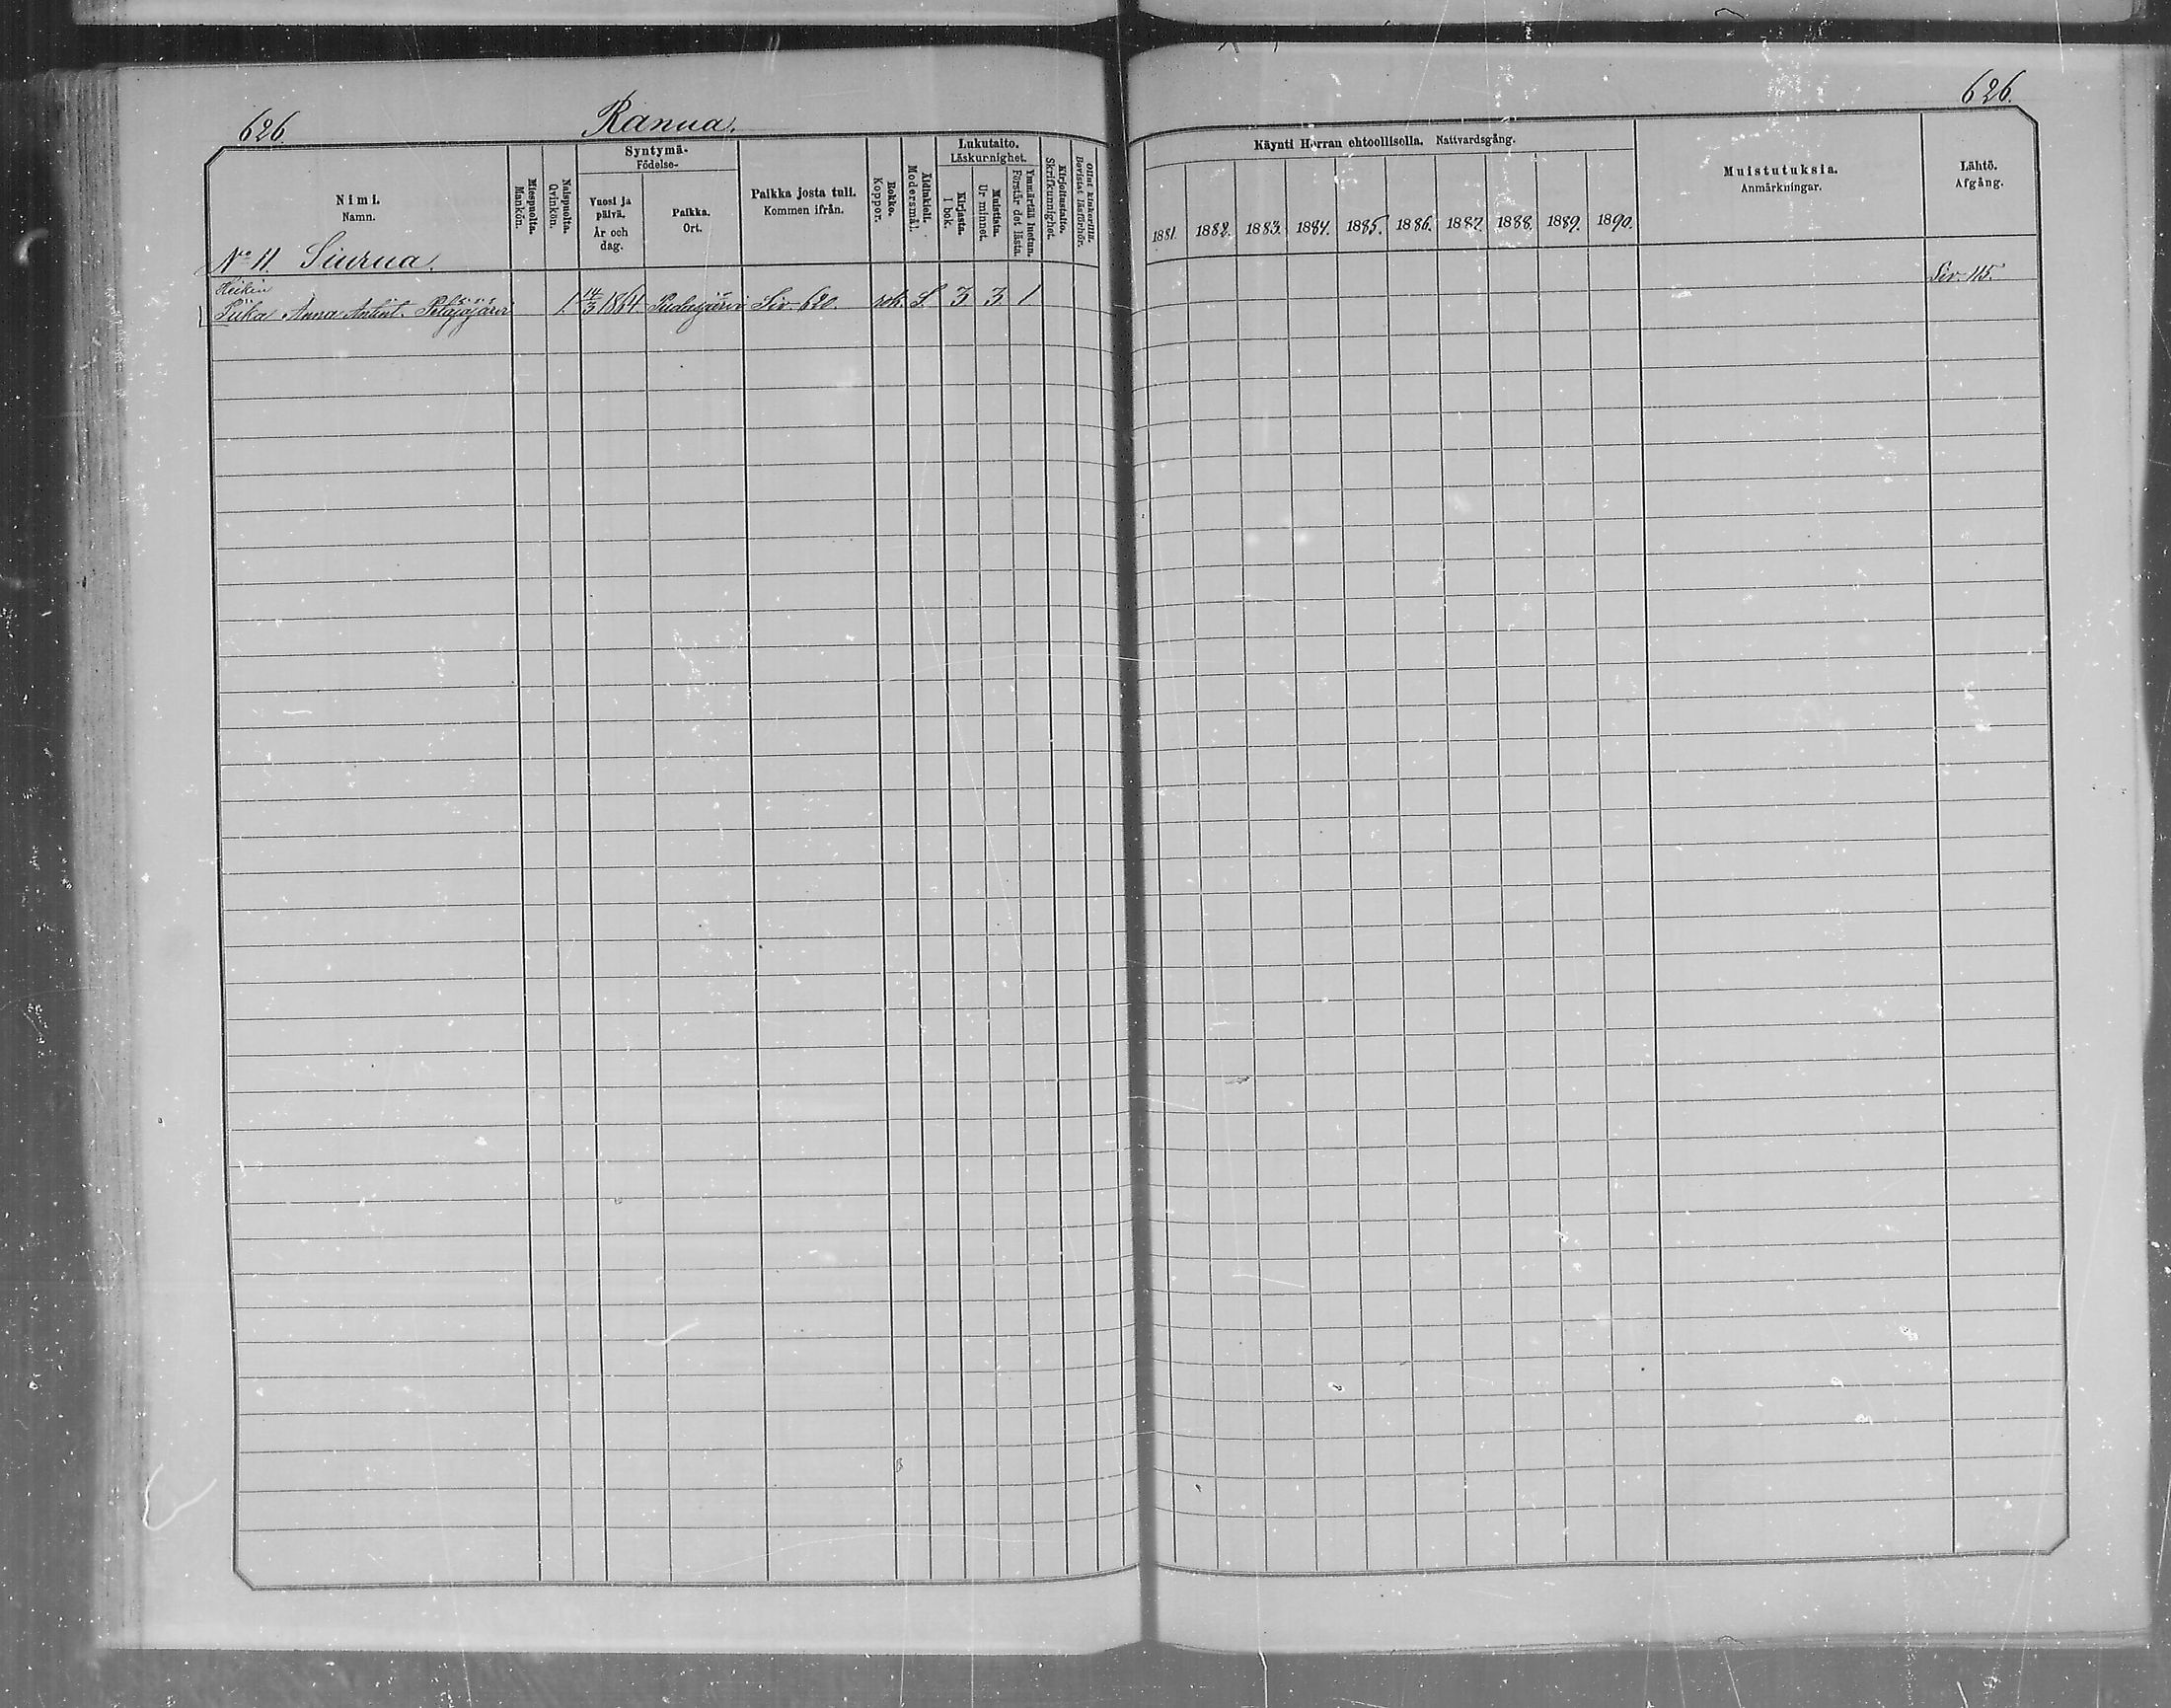 626.
Ranua.
626.
Nimi.
Namn.
Miespuolta.
Mankön.
Naispuolta.
Qvinkön.
Syntymä-
Födelse-
Vuosi ja päivä.
År och dag.
Paikka.
Ort.
Paikka josta tuli.
Kommen ifrån.
Rokko.
Koppor.
Äidinkieli.
Modersmål.
Lukutaito.
Läskunnighet.
Kirjasta.
I bok.
Muistista.
Ur minnet.
Ymmärtää luetun.
Förstår det lästa.
Kirjoitustaito.
Skrifkunnighet.
Ollut kinkerillä.
Bevistat läsförhör.
Käynti Herran ehtoollisella. Nattvardsgång.
1881. 1882. 1883. 1884. 1885. 1886. 1887. 1888. 1889. 1890.
Muistutuksia.
Anmärkningar.
Lähtö.
Afgång.
No 11. Siurua.
Heikin
Piika Anna Antint. Petäjäjärvi 1. 14/3 1864. Pudasjärvi Siv. 620. rok. S. 3 3. 1 Siv. 115.